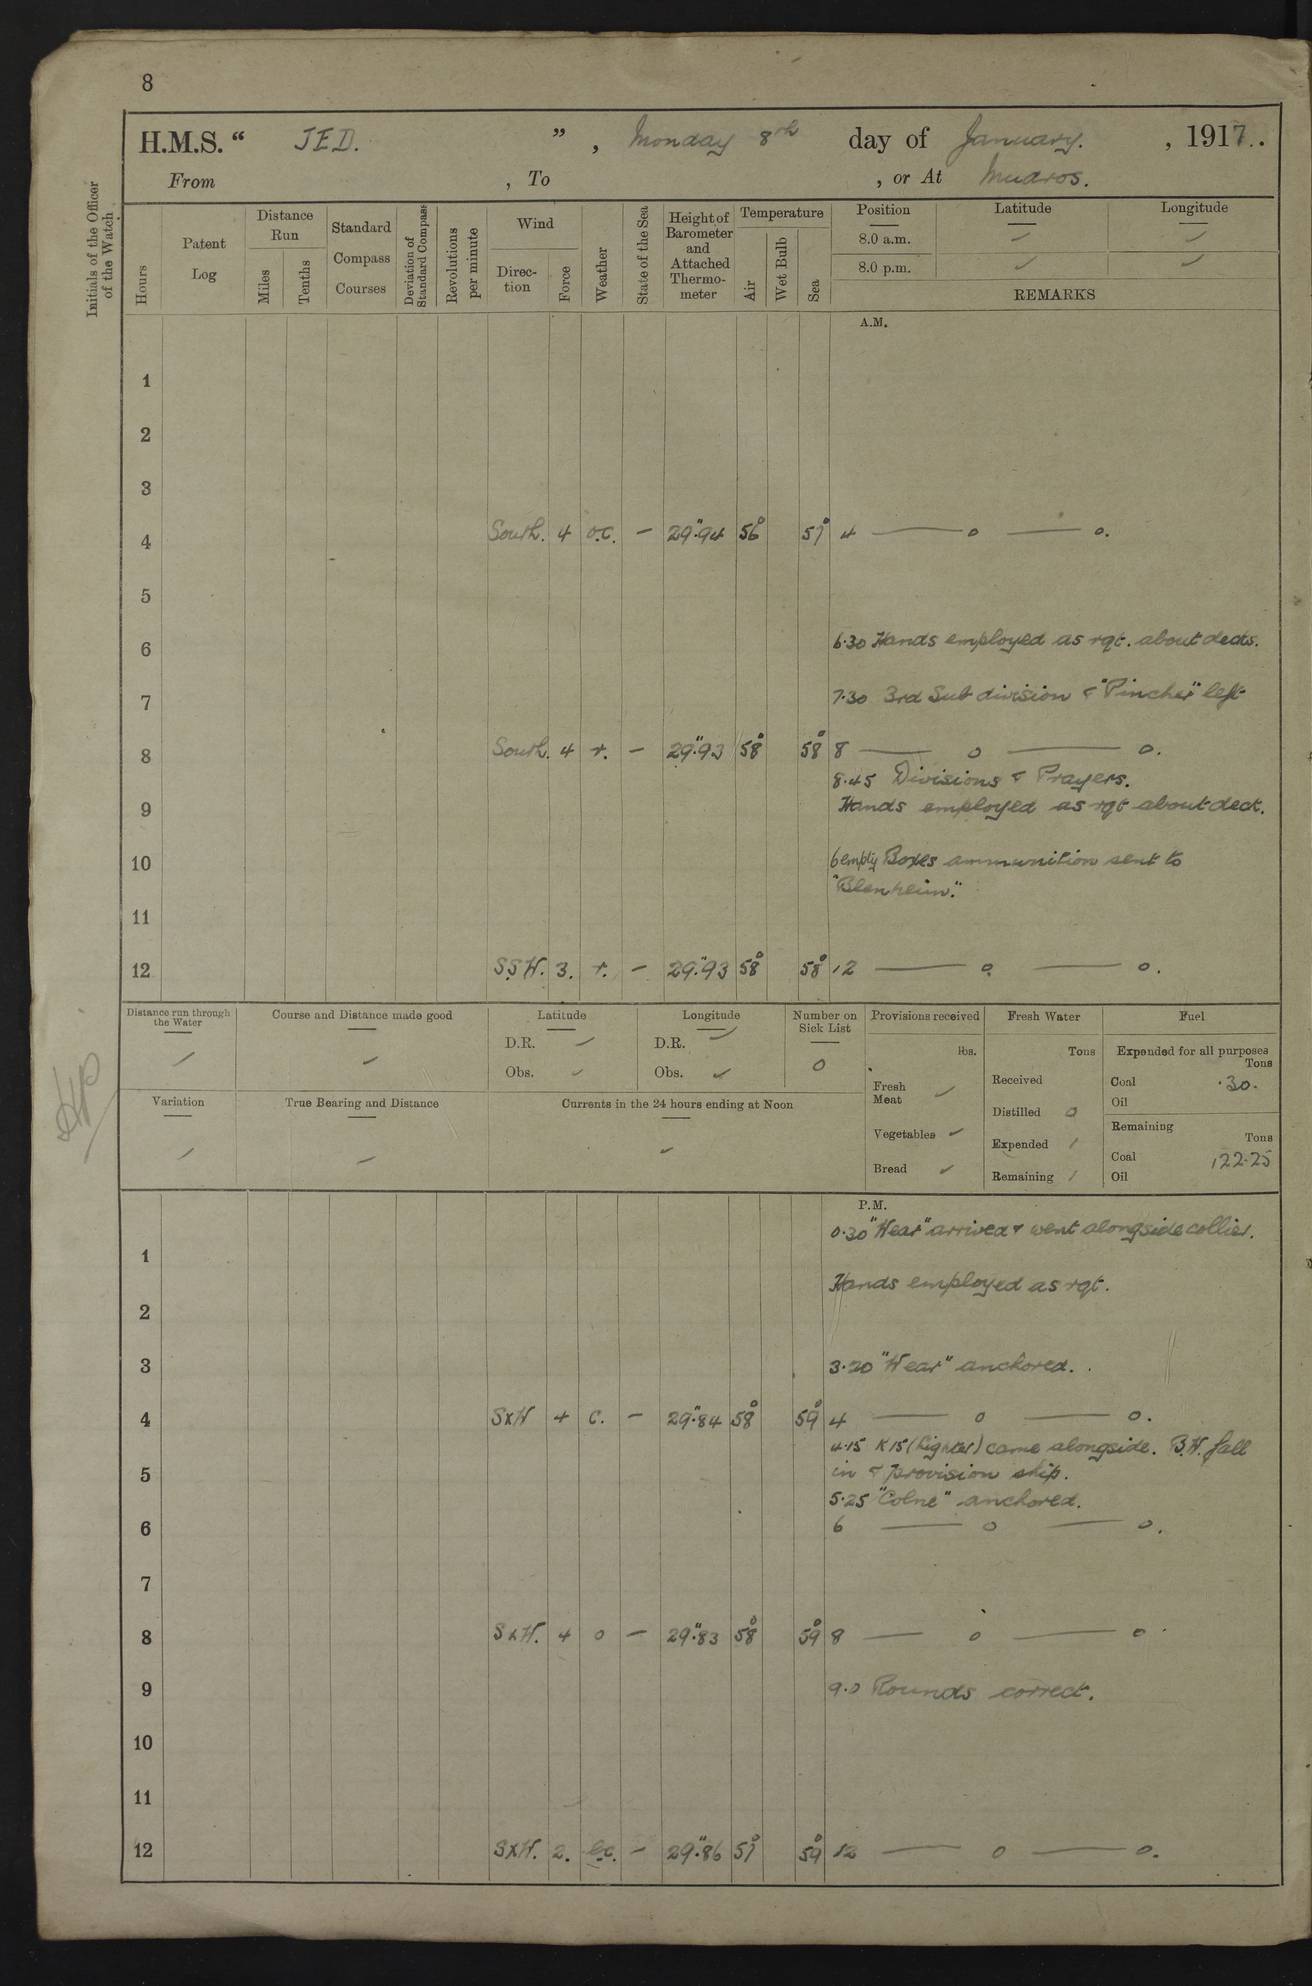 8
H.M.S. “ JED. ” , Monday 8th day of January. , 1917.
From , To , or At Mudros.
Initials of the Officer of the Watch
Hours
Patent Log
Distance Run
Miles
Tenths
Standard Compass Courses
Deviation of Standard Compass
Revolutions per minute
Wind
Direc-tion
Force
Weather
State of the Sea
Height of Barometer and Attached Thermo-meter
Temperature
Air
Wet Bulb
Sea
Position Latitude Longitude
8.0 a.m. ✓ ✓
8.0 p.m. ✓ ✓
REMARKS
A.M.
1
2
3
4 South. 4 o.c. — 29".94 56° 57° 4 —— o —— o.
5
6 6.30 Hands employed as rqt. about decks.
7 7.30 3rd Sub division & "Pincher" left
8 South. 4 r. — 29".93 58° 58° 8 —— o —— o.
8.45 Divisions & Prayers.
9 Hands employed as rqt about deck.
10 6 empty Boxes ammunition sent to
"Blenheim".
11
12 S.S.W. 3. r. — 29".93 58° 58° 12 —— o —— o.
Distance run through the Water ✓
Course and Distance made good ✓
Latitude
D.R. ✓
Obs. ✓
Longitude
D.R. ✓
Obs. ✓
Number on Sick List
0
Provisions received
lbs.
Fresh Meat ✓
Vegetables ✓
Bread ✓
Fresh Water
Tons
Received
Distilled 0
Expended /
Remaining /
Fuel
Expended for all purposes
Tons
Coal .30.
Oil
Remaining
Tons
Coal 122.25
Oil
Variation ✓
True Bearing and Distance ✓
Currents in the 24 hours ending at Noon ✓
P.M.
0.30 "Wear" arrived & went alongside collier.
1
Hands employed as rqt.
2
3 3.20 "Wear" anchored.
4 SxW 4 c. — 29".84 58° 59° 4 —— o —— o.
4.15 K15 (Lighter) came alongside. B.W. fall
5 in & provision ship.
5.25 "Colne" anchored.
6 6 —— o —— o.
7
8 SxW. 4 o — 29".83 58° 59° 8 —— o —— o
9 9.0 Rounds correct.
10
11
12 SxW. 2. b.c. — 29".86 57° 59° 12 —— o —— o.